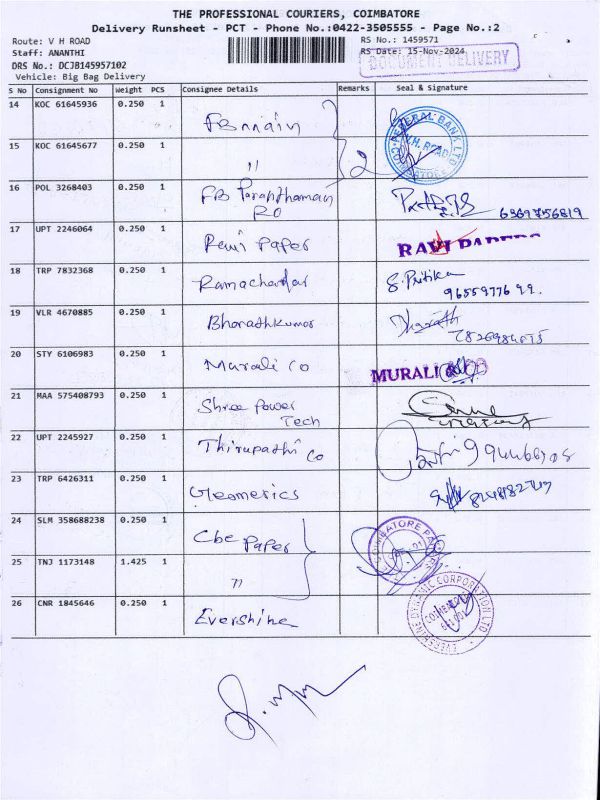 THE PROFESSIONAL COURIERS, COIMBATORE
Delivery Runsheet - PCT - Phone No.:0422-3505555 - Page No.:2
Route: V H ROAD
RS No.: 1459571
Staff: ANANTHI
RS Date: 15-Nov-2024
DRS No.: DCJB145957102
DOCUMENT DELIVERY
Vehicle: Big Bag Delivery
S No Consignment No Weight PCS Consignee Details Remarks Seal & Signature
14 KOC 61645936 0.250 1 FB main
FEDERAL BANK LTD V.H. ROAD COIMBATORE
15 KOC 61645677 0.250 1 " 2
16 POL 3268403 0.250 1 FB Paranthaman RO 6369756819
17 UPT 2246064 0.250 1 Ravi Paper RAVI PAPERS
18 TRP 7832368 0.250 1 Ramachandar S. Pritika
9655977699.
19 VLR 4670885 0.250 1 Bharathkumar Bharath
20 STY 6106983 0.250 1 Murali Co MURALI
21 MAA 575408793 0.250 1 Shree Power Tech
22 UPT 2245927 0.250 1 Thirupathi Co
23 TRP 6426311 0.250 1 Geomerics
24 SLM 358688238 0.250 1 Cbe Paper
COIMBATORE
25 TNJ 1173148 1.425 1 "
26 CNR 1845646 0.250 1 Evershine
EVERSHINE DYNAMIC CORPORATION LTD